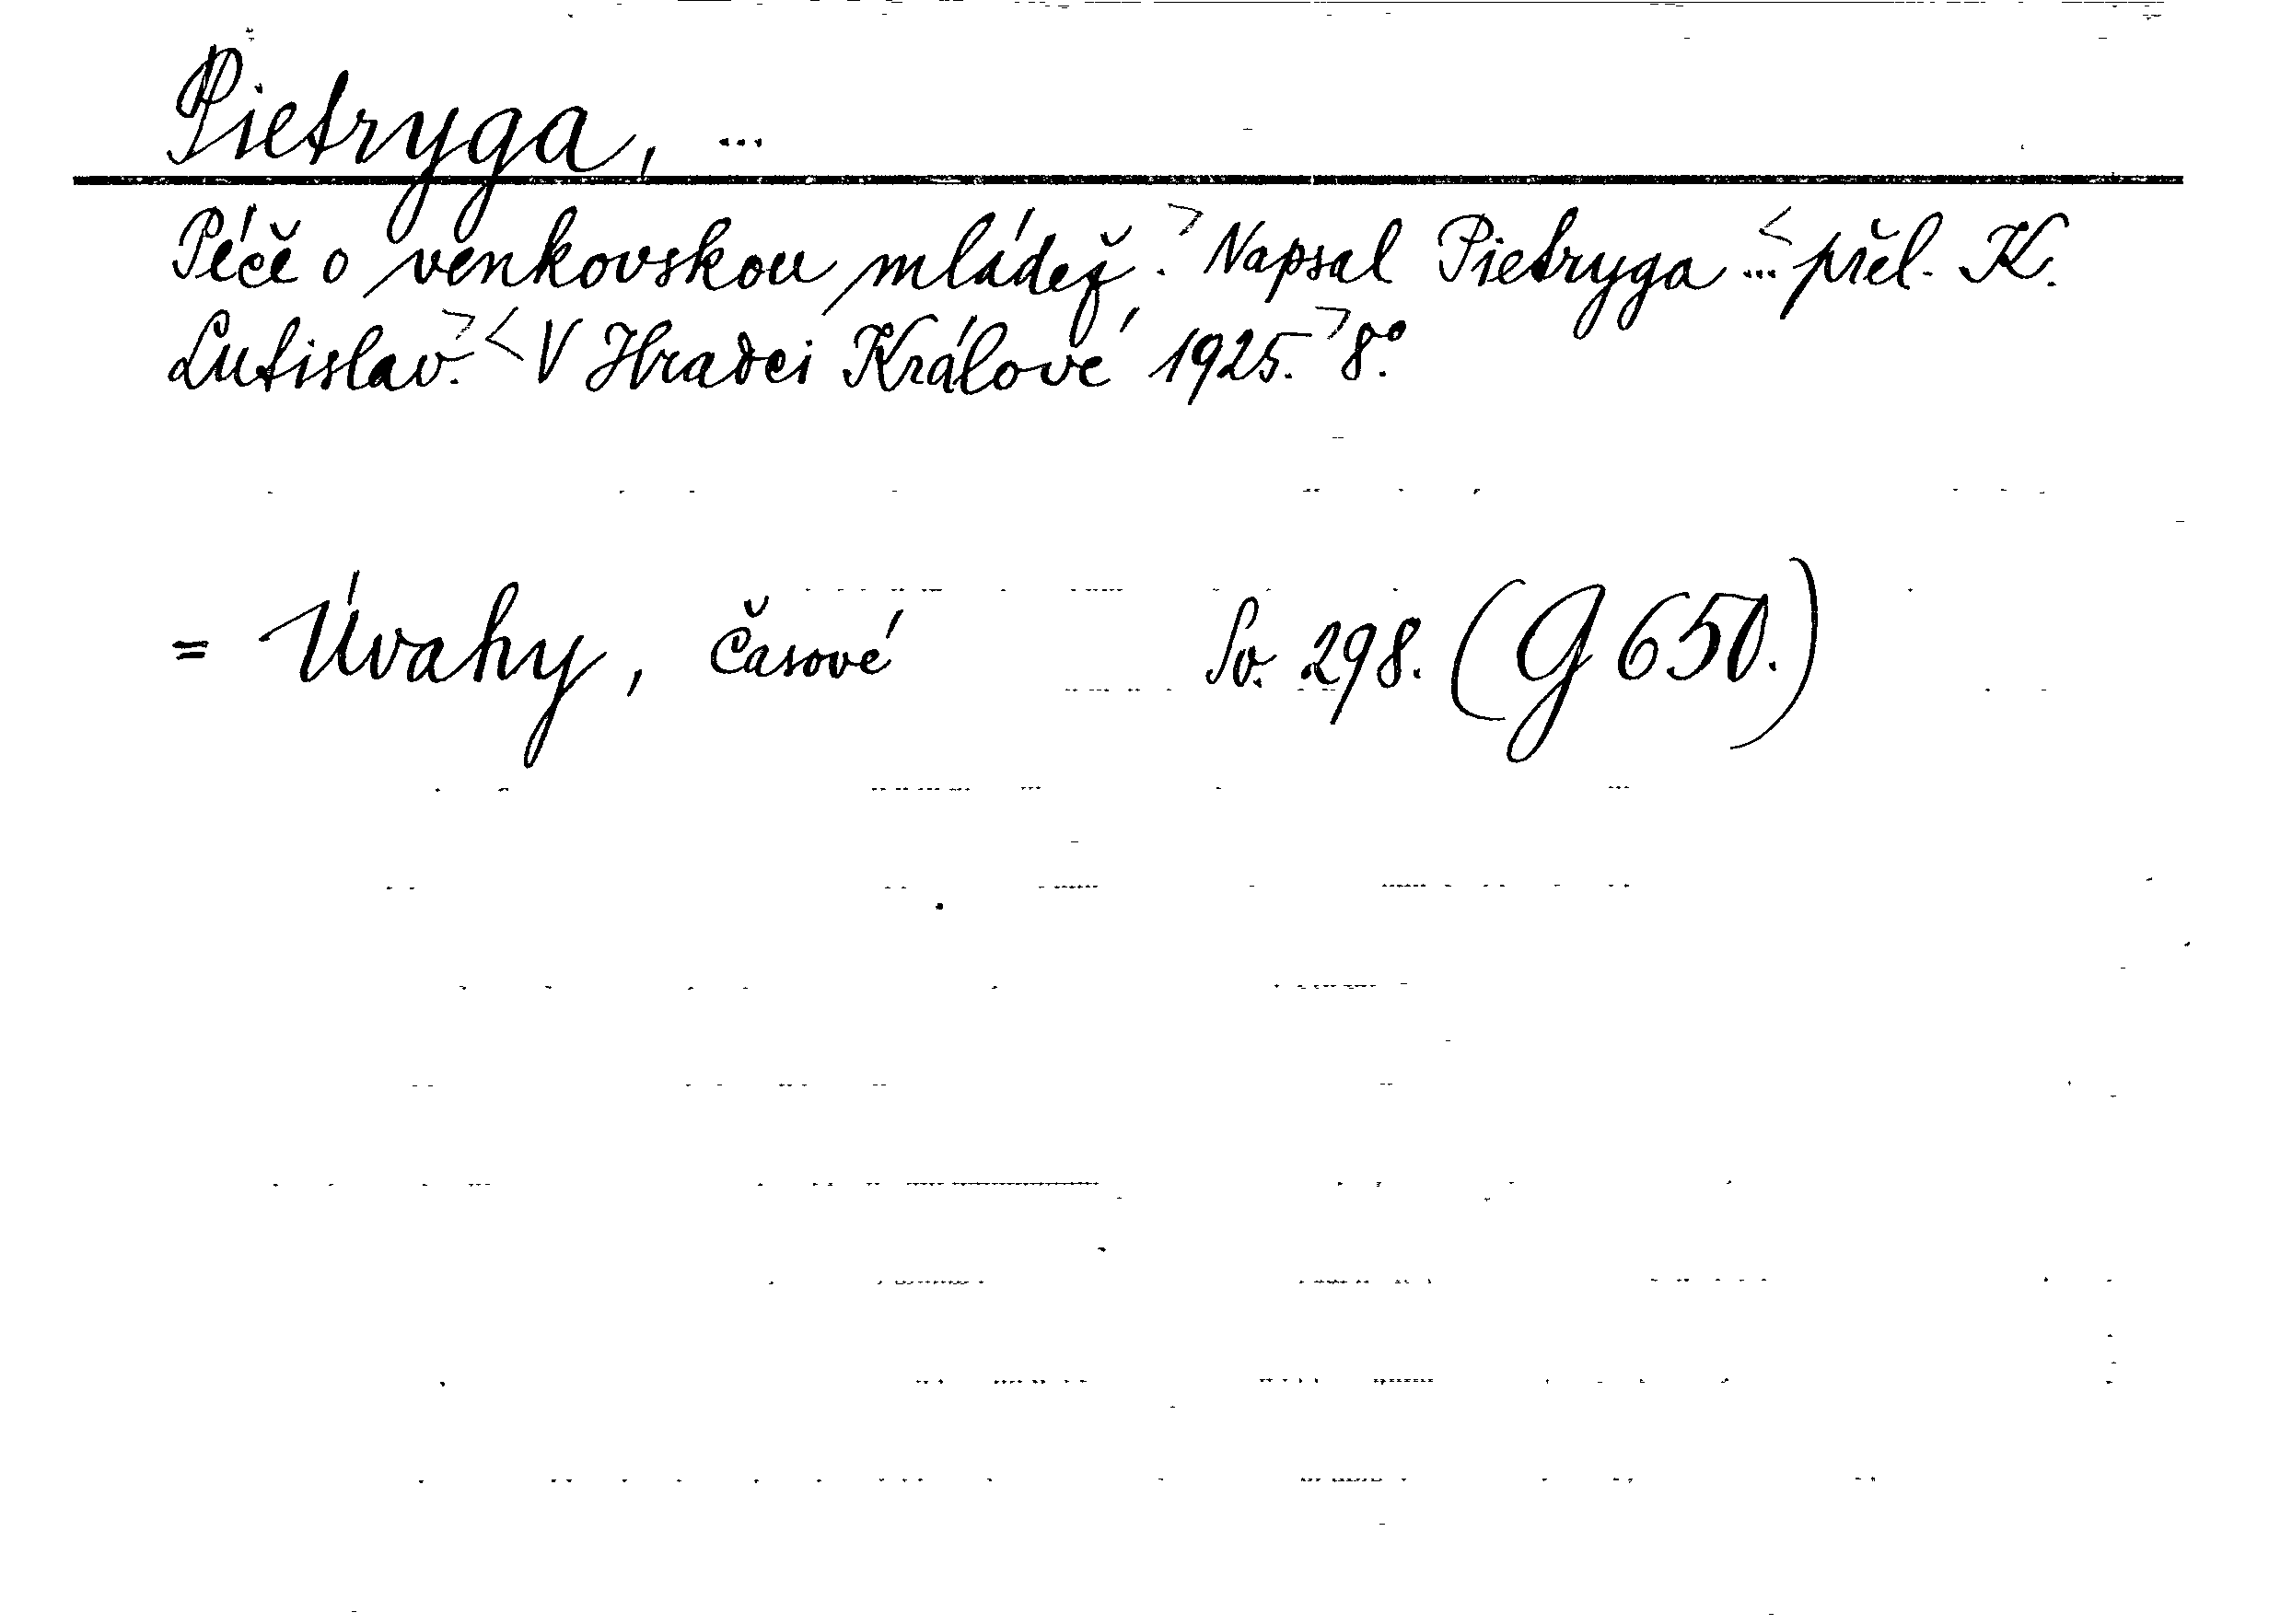 Pietryga, ...
Péče o venkovskou mládež.> Napsal Pietryga <... přel. K.
Lutislav.> <V Hradci Králové, 1925.> 8°.
= Úvahy, časové Sv. 298. (G 650.)